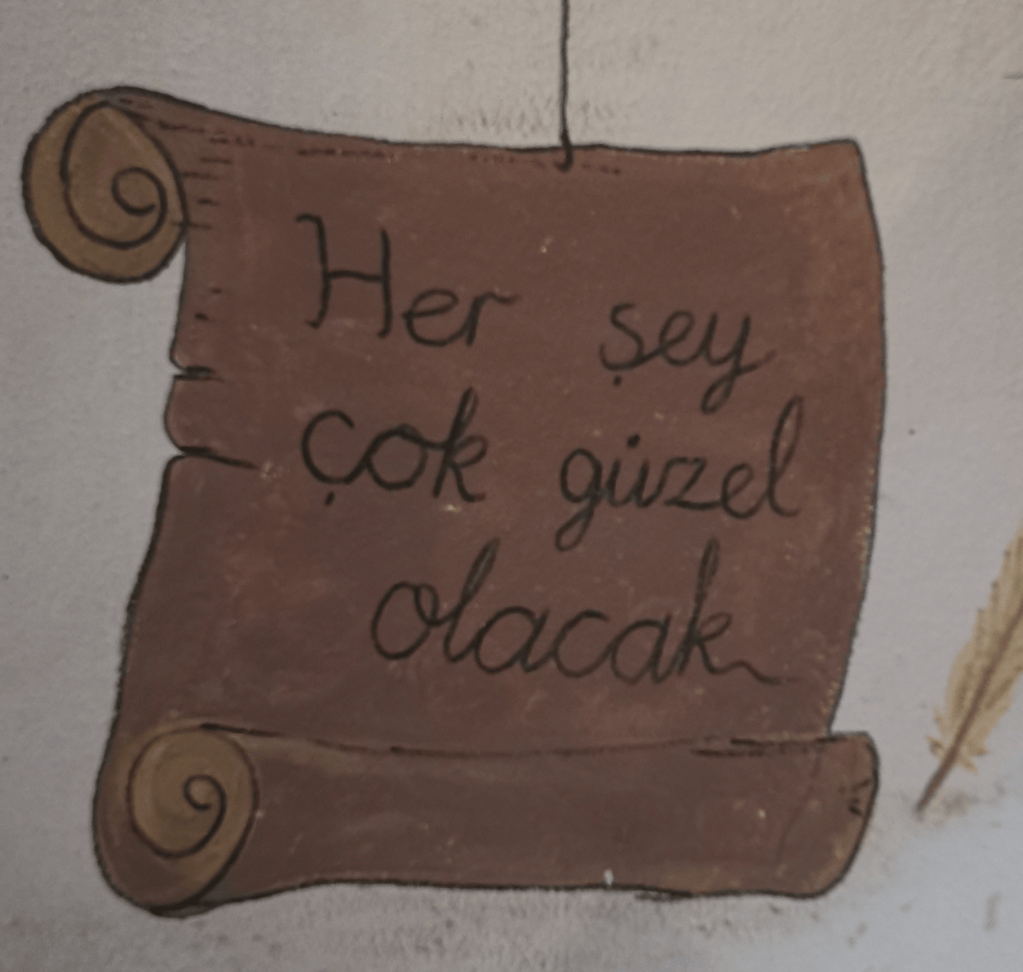 Her şey
çok güzel
olacak